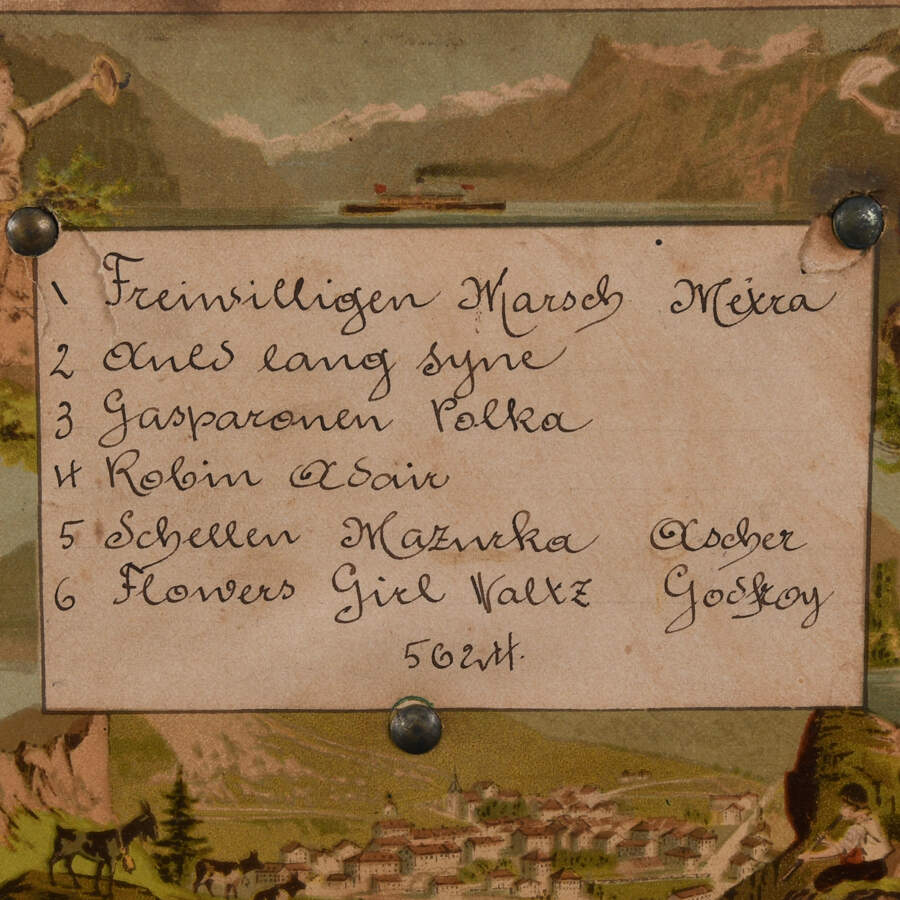 1 Freiwilligen Marsch Mexra
2 Auld lang syne
3 Gasparonen Polka
4 Robin Adair
5 Schellen Mazurka Ascher
6 Flowers Girl Waltz Godfroy
5624.